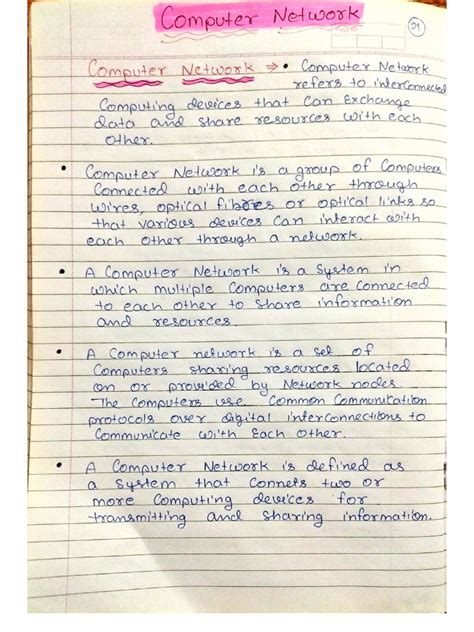 Computer Network
01
Computer Network ⇒ • Computer Network
refers to interconnected
Computing devices that can Exchange
data and share resources with each
other.
• Computer Network is a group of Computers
Connected with each other through
wires, optical fibres or optical links so
that various devices can interact with
each other through a network.
• A Computer Network is a System in
which multiple Computers are connected
to each other to share information
and resources.
• A Computer network is a set of
Computers sharing resources located
on or provided by Network nodes.
The Computers use Common Communication
protocols over digital interconnections to
Communicate with Each Other.
• A Computer Network is defined as
a System that Connets two or
more Computing devices for
transmitting and sharing information.